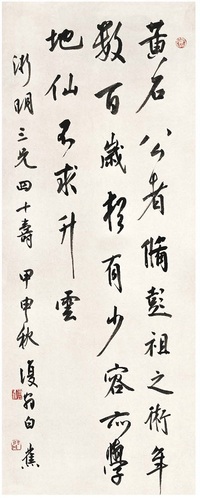 黄石公者脩彭祖之術年
數百歲猶有少容亦學
地仙不求升雲
淅明三兄四十壽 甲申秋 復翁白蕉